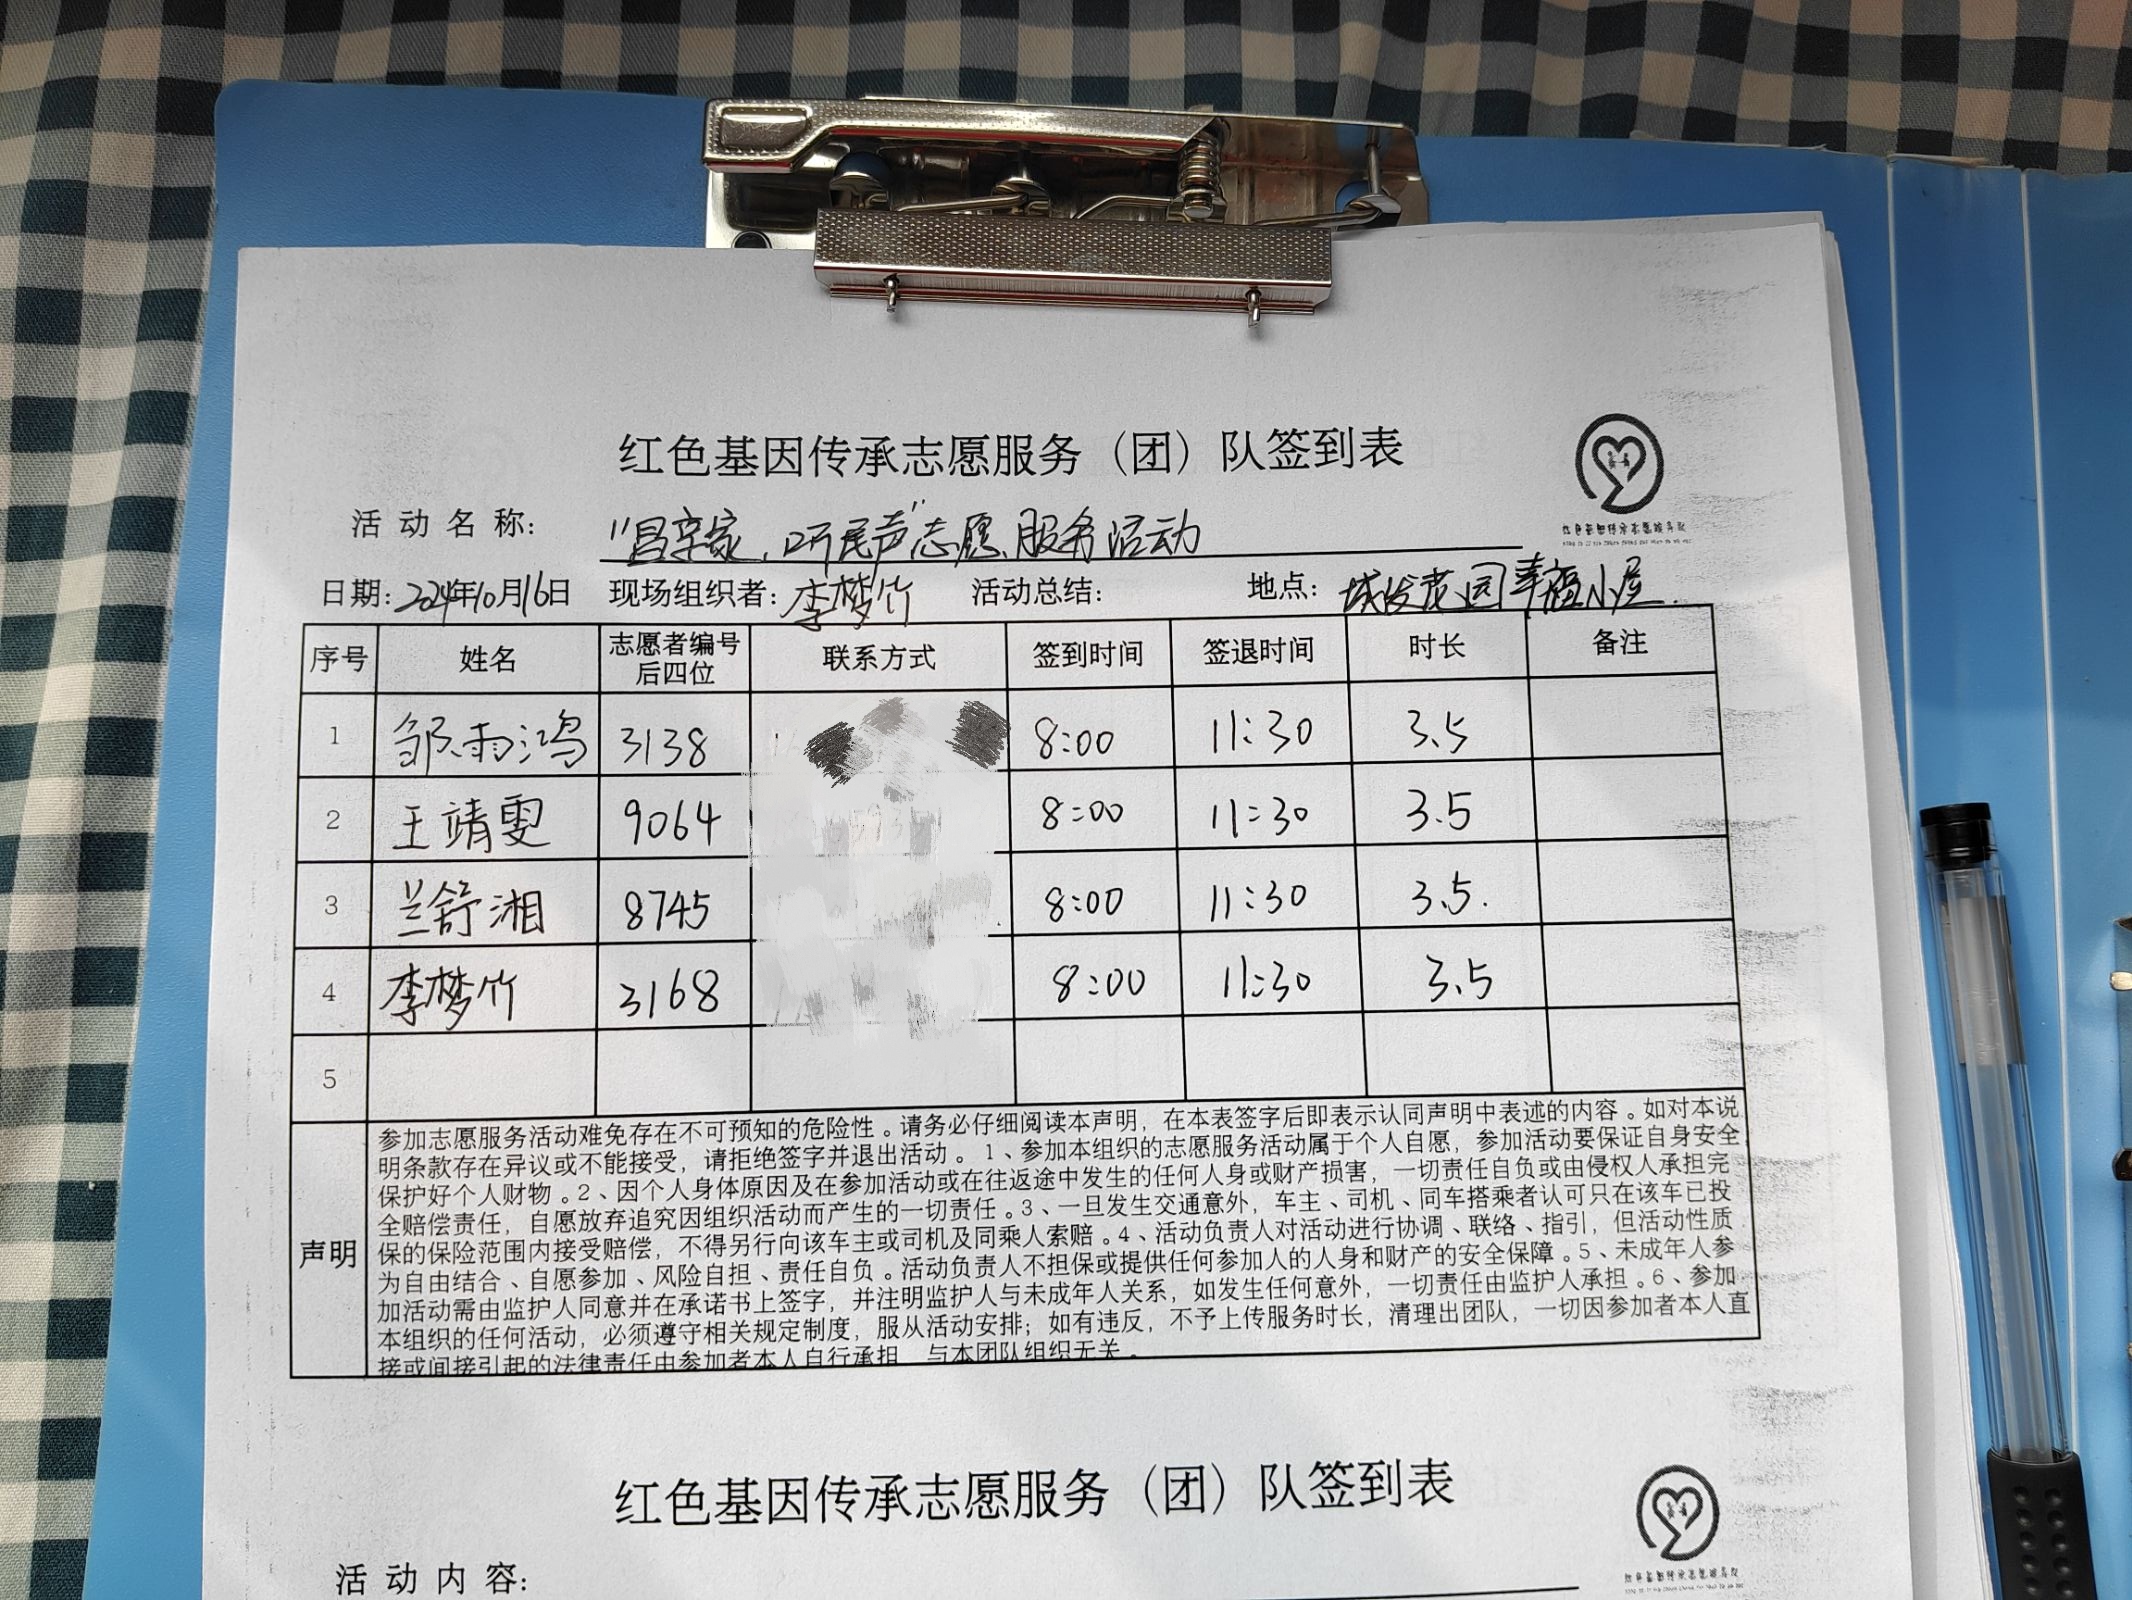 红色基因传承志愿服务（团）队签到表
活动名称：“冒亲家，听民声”志愿服务活动
日期：2024年10月16日 现场组织者：李梦竹 活动总结： 地点：城发茂园幸福小屋
序号 姓名 志愿者编号后四位 联系方式 签到时间 签退时间 时长 备注
1 邹雨鸿 3138 8:00 11:30 3.5
2 王靖雯 9064 8:00 11:30 3.5
3 兰舒湘 8745 8:00 11:30 3.5.
4 李梦竹 3168 8:00 11:30 3.5
5
声明
参加志愿服务活动难免存在不可预知的危险性。请务必仔细阅读本声明，在本表签字后即表示认同声明中表述的内容。如对本说
明条款存在异议或不能接受，请拒绝签字并退出活动。1、参加本组织的志愿服务活动属于个人自愿，参加活动要保证自身安全
保护好个人财物。2、因个人身体原因及在参加活动或在往返途中发生的任何人身或财产损害，一切责任自负或由侵权人承担完
全赔偿责任，自愿放弃追究因组织活动而产生的一切责任。3、一旦发生交通意外，车主、司机、同车搭乘者认可只在该车已投
保的保险范围内接受赔偿，不得另行向该车主或司机及同乘人索赔。4、活动负责人对活动进行协调、联络、指引，但活动性质
为自由结合、自愿参加、风险自担、责任自负。活动负责人不担保或提供任何参加人的人身和财产的安全保障。5、未成年人参
加活动需由监护人同意并在承诺书上签字，并注明监护人与未成年人关系，如发生任何意外，一切责任由监护人承担。6、参加
本组织的任何活动，必须遵守相关规定制度，服从活动安排；如有违反，不予上传服务时长，清理出团队，一切因参加者本人直
接或间接引起的法律责任由参加者本人自行承担，与本团队组织无关。
红色基因传承志愿服务（团）队签到表
活动内容：